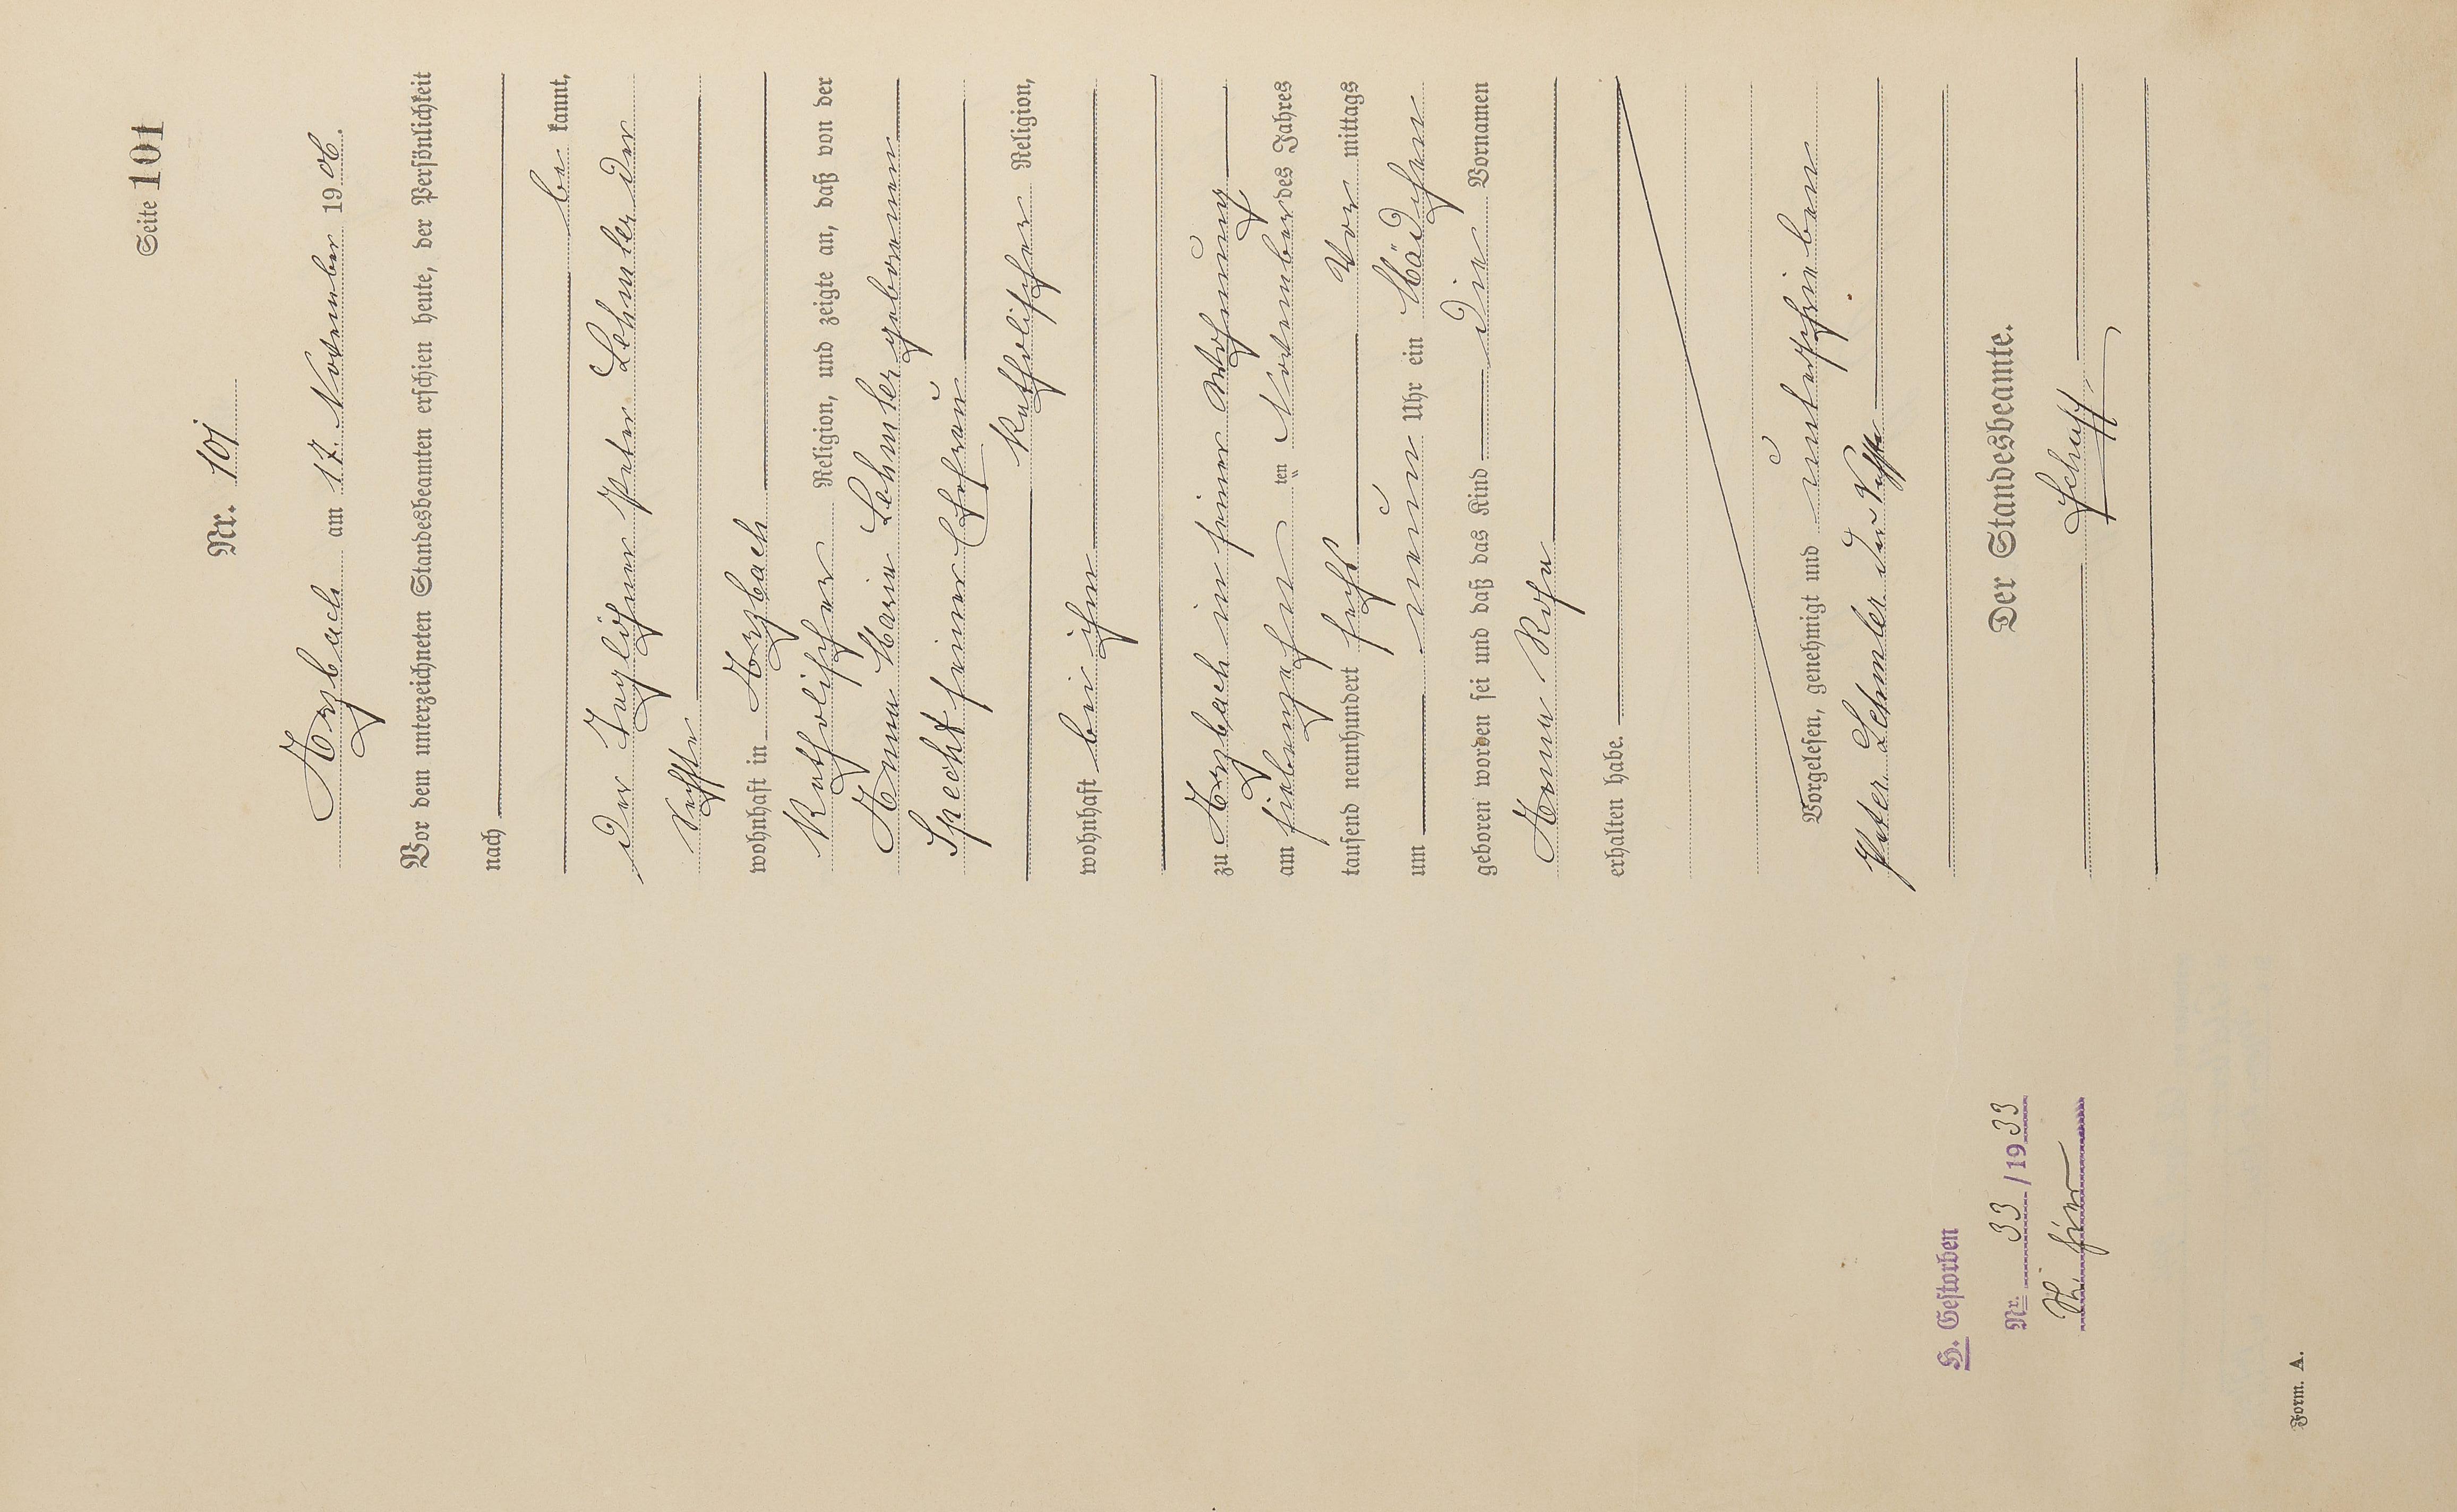 Seite 101
Nr. 101
Arzbach am 17. November 1906.
Vor dem unterzeichneten Standesbeamten erschien heute, der Persönlichkeit
nach
be kannt,
der Taglöhner Peter Lehmler der
Sechste
wohnhaft in Arzbach
katholischer Religion, und zeigte an, daß von der
Anna Maria Lehmler geborenen
Specht seiner Ehefrau
katholischer Religion,
wohnhaft bei ihm
zu Arzbach in seiner Wohnung
am siebenzehn ten November des Jahres
tausend neunhundert sechs Vor mittags
um neun Uhr ein Mädchen
geboren worden sei und daß das Kind die Vornamen
Anna Rosa
erhalten habe.
Vorgelesen, genehmigt und unterschrieben
Peter Lehmler der Sechste
Der Standesbeamte.
H. Gestorben
Nr. 33 / 1933
hier
Form. A.